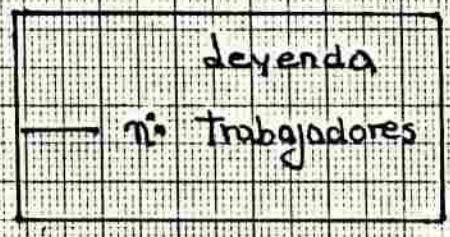 Leyenda
nº Trabajadores